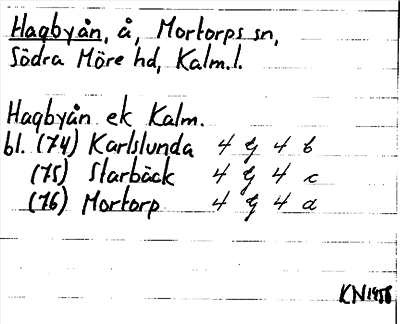 Hagbyån, å, Mortorps sn,
Södra Möre hd, Kalm.l.
Hagbyån ek Kalm.
bl. (74) Karlslunda 4 G 4 b
(75) Starbäck 4 G 4 c
(76) Mortorp 4 G 4 a
KN 1958